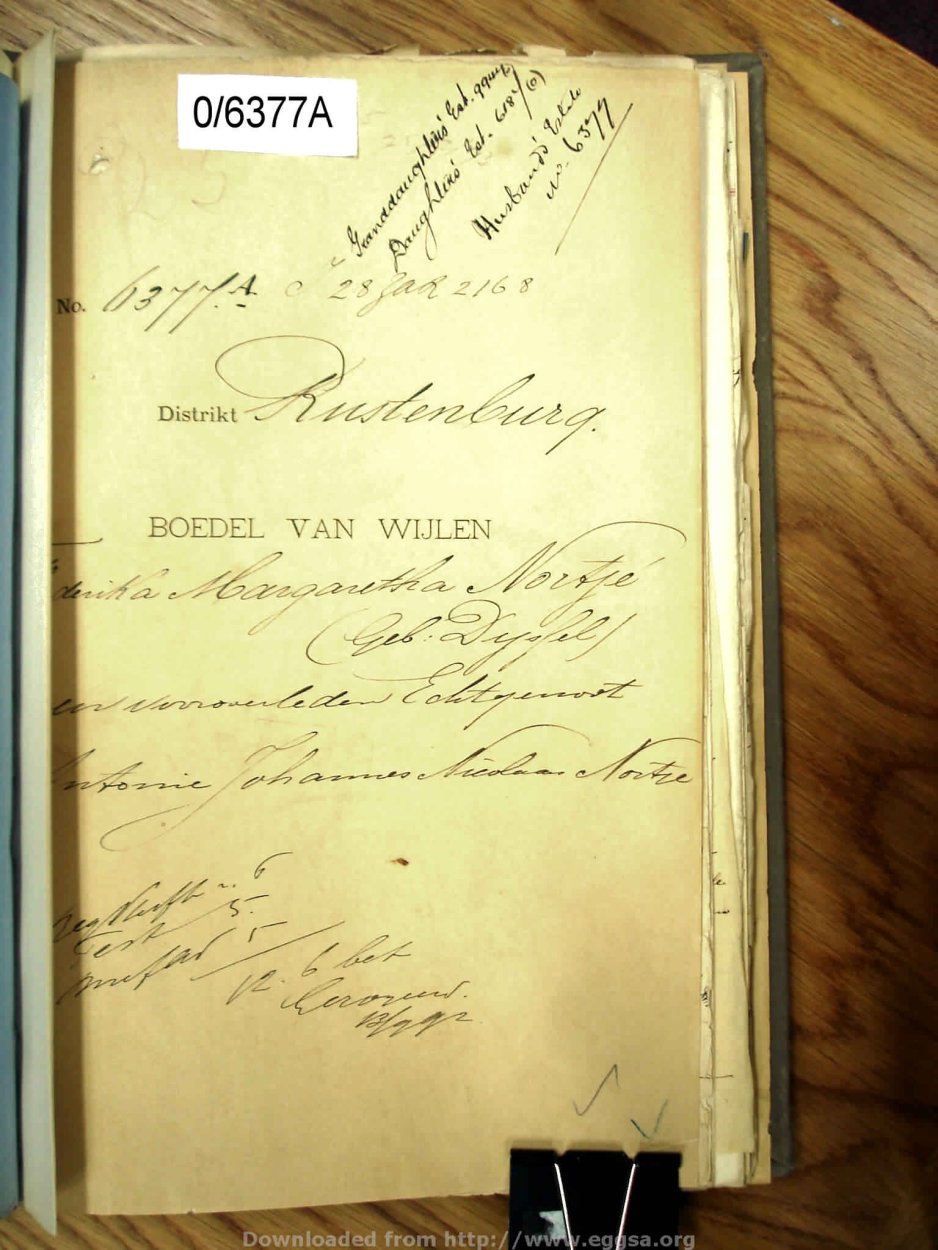 0/6377A
Granddaughters' Est.
Daughters' Est. 6184 (0)
Husband's Estate
No. 6377
No. 6377.A
28 2168
Distrikt Rustenburg.
BOEDEL VAN WIJLEN
derika Margaretha Nortjé
(Geb: Dyssel)
en vooroverleden Echtgenoot
ntonie Johannes Nicolaas Nortje
6
Test 5.
5
12. 6 bet
Downloaded from http://www.eggsa.org